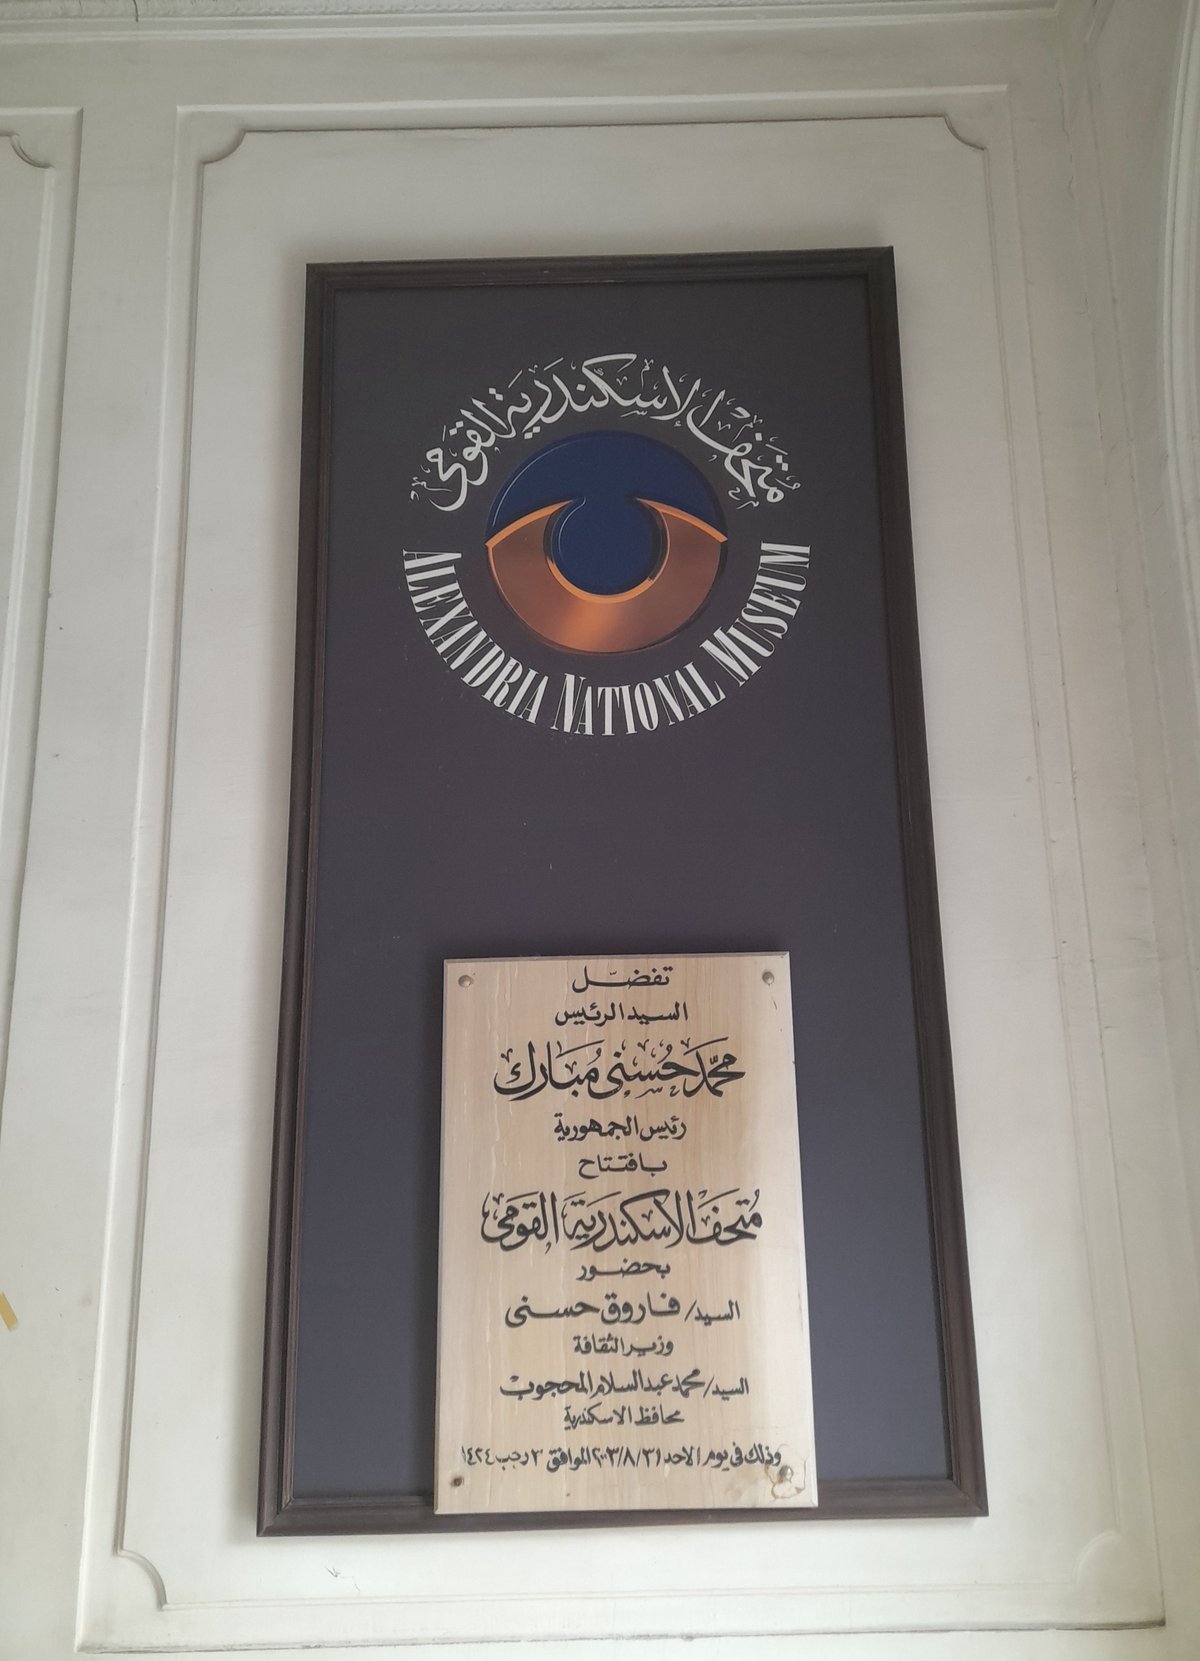 متحف الإسكندرية القومى
ALEXANDRIA NATIONAL MUSEUM
تفضّل
السيد الرئيس
محمّد حُسنى مُبَارك
رئيس الجمهورية
بافتتاح
مُتحَف الاسكندَريَة القَومى
بحضور
السيد/ فاروق حسنى
وزير الثقافة
السيد/ محمد عبد السلام المحجوب
محافظ الاسكندرية
وذلك فى يوم الاحد ٢٠٠٣/٨/٣١ الموافق ٣ رجب ١٤٢٤